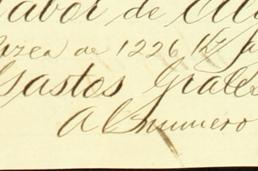 labor de
de 1226 K
Gastos Grales
Al numero